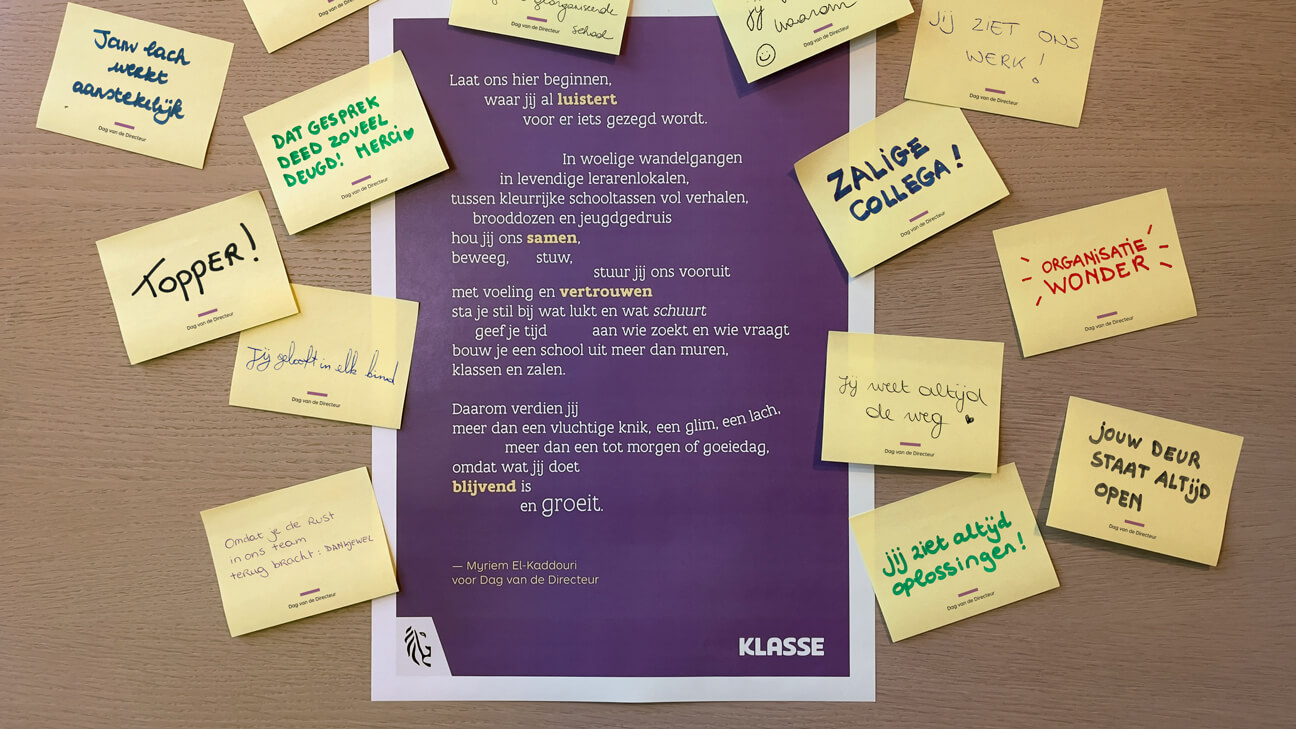 Jouw lach
werkt
aanstekelijk
Dag van de Directeur
Dag van de Directeur
DAT GESPREK
DEED ZOVEEL
DEUGD! MERCI
Dag van de Directeur
TOPPER!
Dag van de Directeur
Jij gelooft in elk kind
Dag van de Directeur
Omdat je de Rust
in ons team
terug bracht: DANKJEWEL
Dag van de Directeur
georganiseerde
school
Dag van de Directeur
Laat ons hier beginnen,
waar jij al luistert
voor er iets gezegd wordt.
In woelige wandelgangen
in levendige lerarenlokalen,
tussen kleurrijke schooltassen vol verhalen,
brooddozen en jeugdgedruis
hou jij ons samen,
beweeg, stuw,
stuur jij ons vooruit
met voeling en vertrouwen
sta je stil bij wat lukt en wat schuurt
geef je tijd aan wie zoekt en wie vraagt
bouw je een school uit meer dan muren,
klassen en zalen.
Daarom verdien jij
meer dan een vluchtige knik, een glim, een lach,
meer dan een tot morgen of goeiedag,
omdat wat jij doet
blijvend is
en groeit.
— Myriem El-Kaddouri
voor Dag van de Directeur
KLASSE
waarom
Dag van de Directeur
JIJ ZIET ONS
WERK!
Dag van de Directeur
ZALIGE
COLLEGA!
Dag van de Directeur
ORGANISATIE
WONDER
Dag van de Directeur
Jij weet altijd
de weg
Dag van de Directeur
JOUW DEUR
STAAT ALTIJD
OPEN
Dag van de Directeur
jij ziet altijd
oplossingen!
Dag van de Directeur